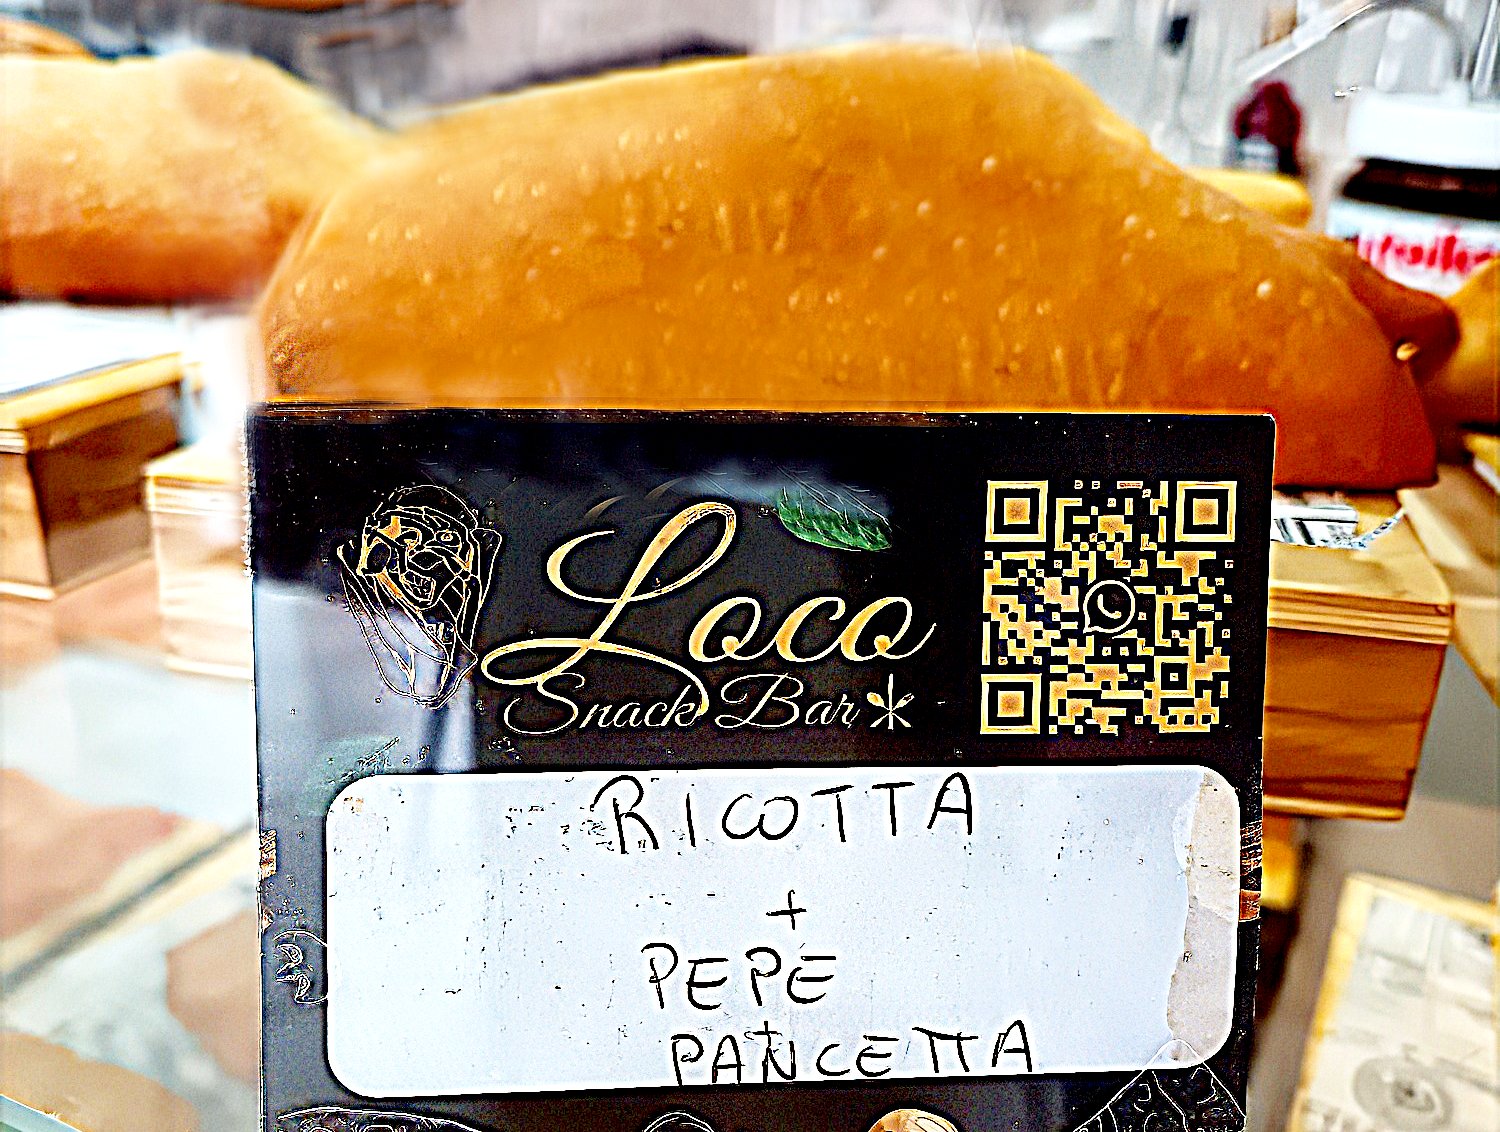 Loco
Snack Bar
RICOTTA
+
PEPE
+
PANCETTA
nutella